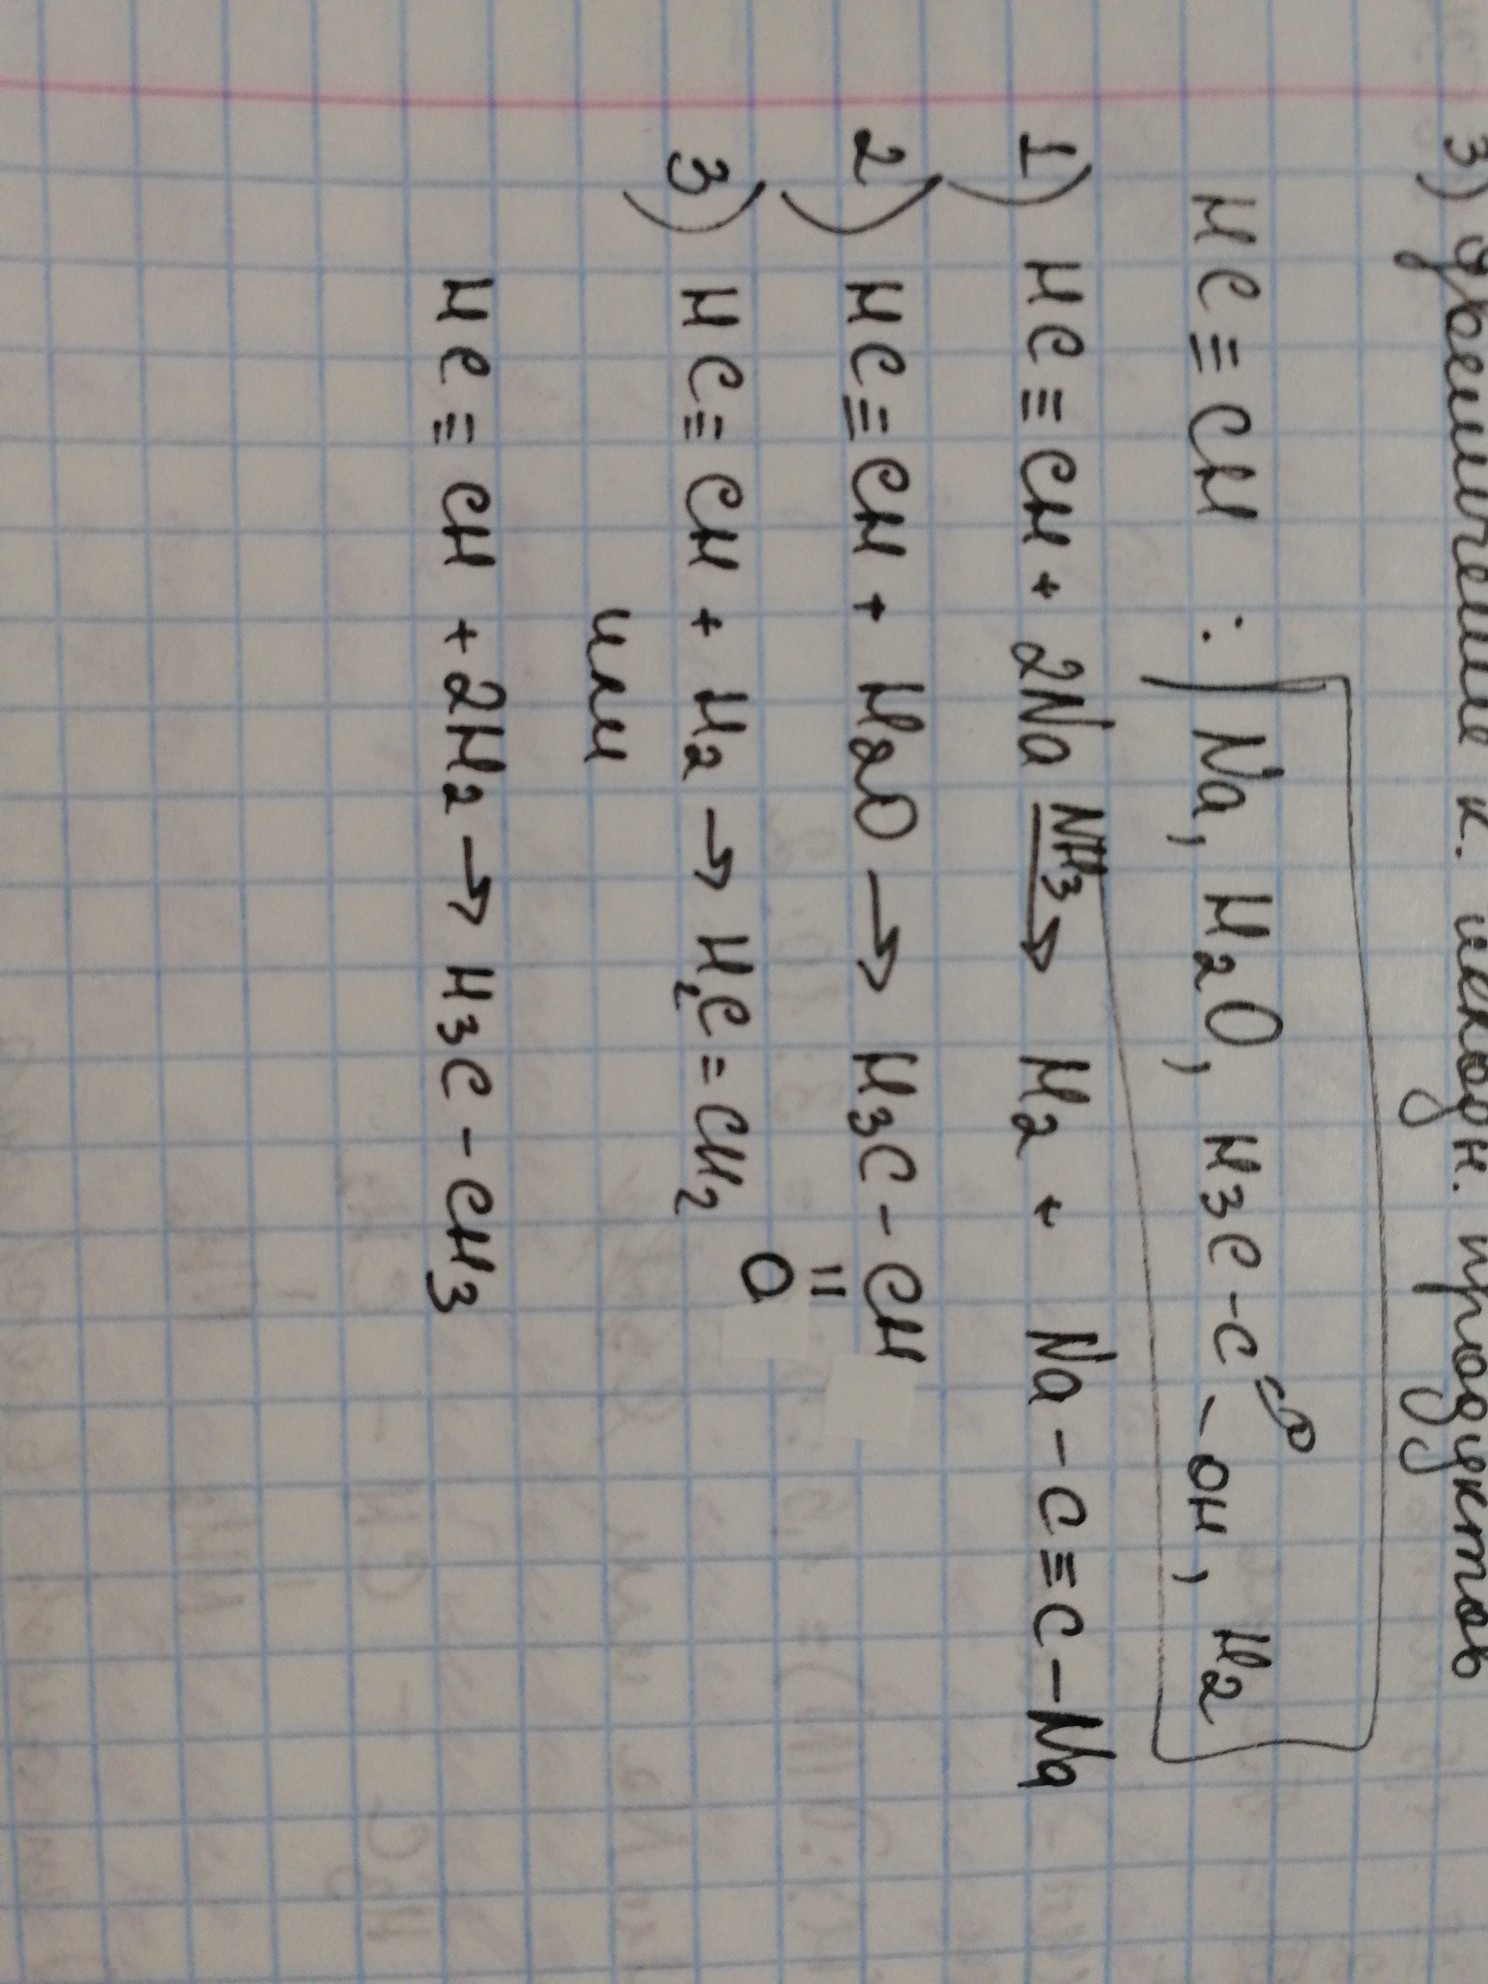 3) отношение к. исходн. продуктов
HC≡CH : Na, H2O, H3C-C-OH, H2
=O
1) HC≡CH + 2Na NH3→ H2 + Na-C≡C-Na
2) HC≡CH + H2O → H3C-CH
=
O
3) HC≡CH + H2 → H2C=CH2
или
HC≡CH + 2H2 → H3C-CH3